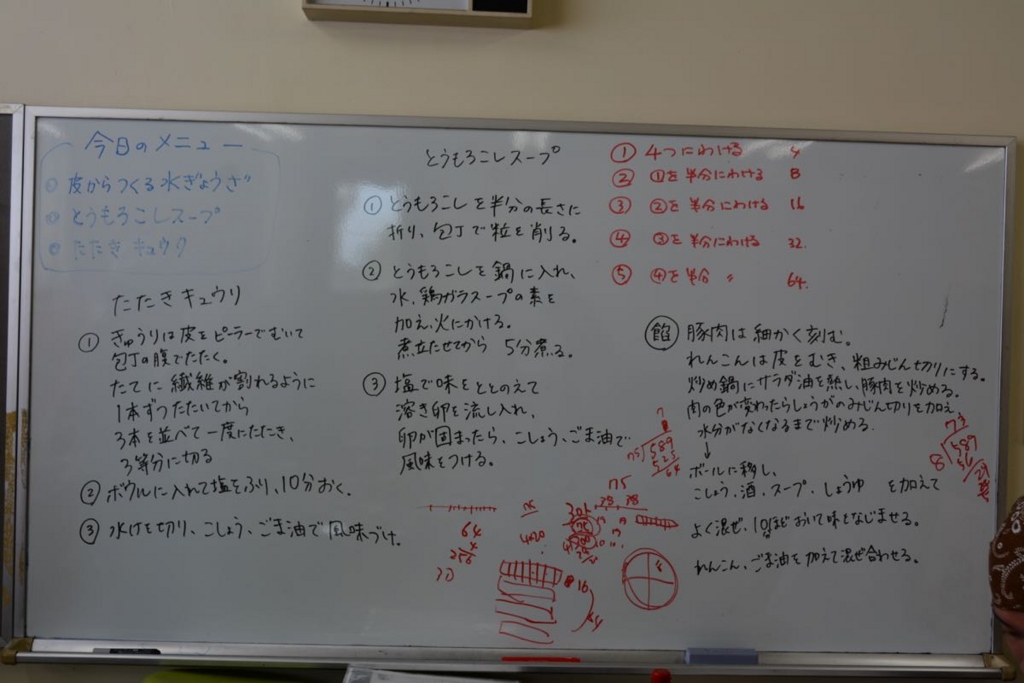 今日のメニュー
① 皮からつくる水ぎょうざ
② とうもろこしスープ
③ たたきキュウリ
たたきキュウリ
① きゅうりは皮をピーラーでむいて
包丁の腹でたたく。
たてに繊維が割れるように
1本ずつたたいてから
3本を並べて一度にたたき、
3等分に切る
② ボウルに入れて塩をふり、10分おく。
③ 水けを切り、こしょう、ごま油で風味づけ。
とうもろこしスープ
① とうもろこしを半分の長さに
折り、包丁で粒を削る。
② とうもろこしを鍋に入れ、
水、鶏ガラスープの素を
加え、火にかける。
煮立たせてから 5分煮る。
③ 塩で味をととのえて
溶き卵を流し入れ、
卵が固まったら、こしょう、ごま油で
風味をつける。
① 4つにわける 4
② ①を半分にわける 8
③ ②を半分にわける 16
④ ③を半分にわける 32.
⑤ ④を半分 〃 64.
餡 豚肉は細かく刻む。
れんこんは皮をむき、粗みじん切りにする。
炒め鍋にサラダ油を熱し、豚肉を炒める。
肉の色が変わったらしょうがのみじん切りを加え、
水分がなくなるまで炒める.
↓
ボールに移し、
こしょう、酒、スープ、しょうゆ を加えて
よく混ぜ、10分ほどおいて味をなじませる。
れんこん、ごま油を加えて混ぜ合わせる。
7
75 589
525
64
73
8 589
56
75
64
4
256
16
64